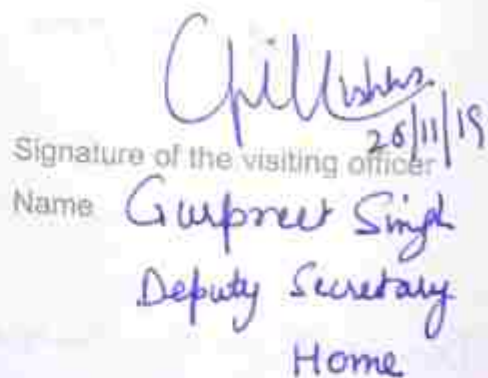 26/11/19
Signature of the visiting officer
Name Gurpreet Singh
Deputy Secretary
Home